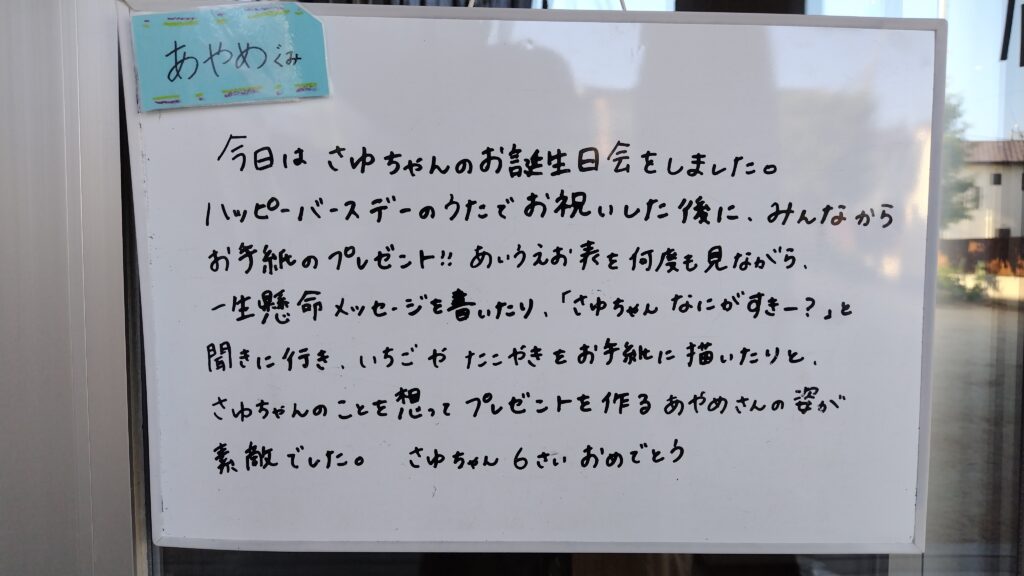 あやめぐみ
今日は さゆちゃんのお誕生日会をしました。
ハッピーバースデーのうたでお祝いした後に、みんなから
お手紙のプレゼント!! あいうえお表を何度も見ながら、
一生懸命メッセージを書いたり、「さゆちゃん なにがすきー?」と
聞きに行き、いちごや たこやきをお手紙に描いたりと、
さゆちゃんのことを想って プレゼントを作るあやめさんの姿が
素敵でした。 さゆちゃん 6さい おめでとう